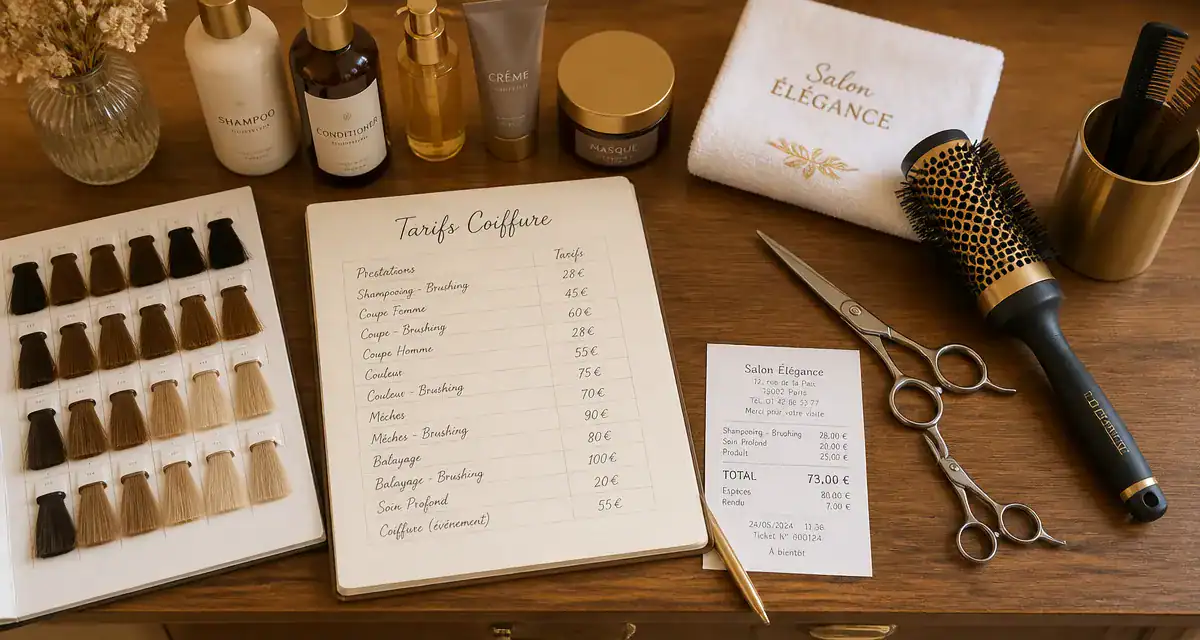 SHAMPOO
CONDITIONER
CRÉME
MASQUE
Salon
ÉLÉGANCE
Tarifs Coiffure
Prestations Tarifs
Shampooing - Brushing 28 €
Coupe Femme 45 €
Coupe - Brushing 60 €
Coupe Homme 28 €
Couleur 55 €
Couleur - Brushing 75 €
Mèches 70 €
Mèches - Brushing 90 €
Balayage 80 €
Balayage - Brushing 100 €
Soin Profond 20 €
Coiffure (événement) 55 €
Salon Élégance
12, rue de la Paix
75002 Paris
Tél. 01 42 86 53 77
Merci pour votre visite
Shampooing - Brushing 28,00 €
Soin Profond 20,00 €
Produit 25,00 €
TOTAL 73,00 €
Espèces 80,00 €
Rendu 7,00 €
24/05/2024 11:36
Ticket N° 000124
À bientôt